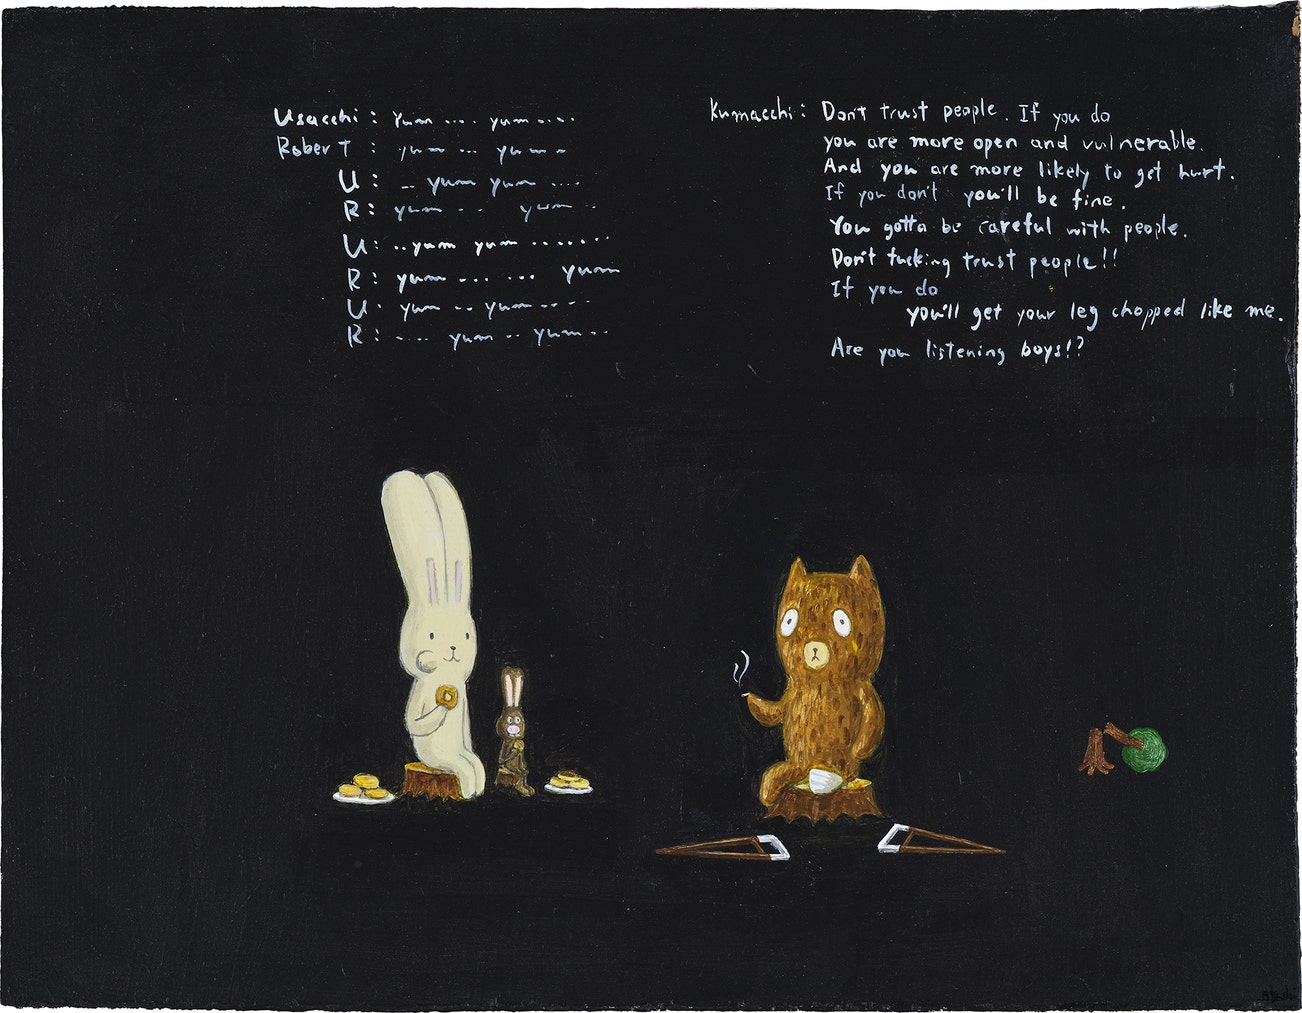 Usacchi : yum .... yum ....
Robert : yum ... yum ..
U : .. yum yum ....
R : yum .. yum ..
U : .. yum yum .......
R : yum ... ... yum
U : yum .. yum .. ..
R : .... yum .. yum ..
Kumacchi : Don't trust people. If you do
you are more open and vulnerable.
And you are more likely to get hurt.
If you don't you'll be fine.
You gotta be careful with people.
Don't fucking trust people!!
If you do
you'll get your leg chopped like me.
Are you listening boys!?